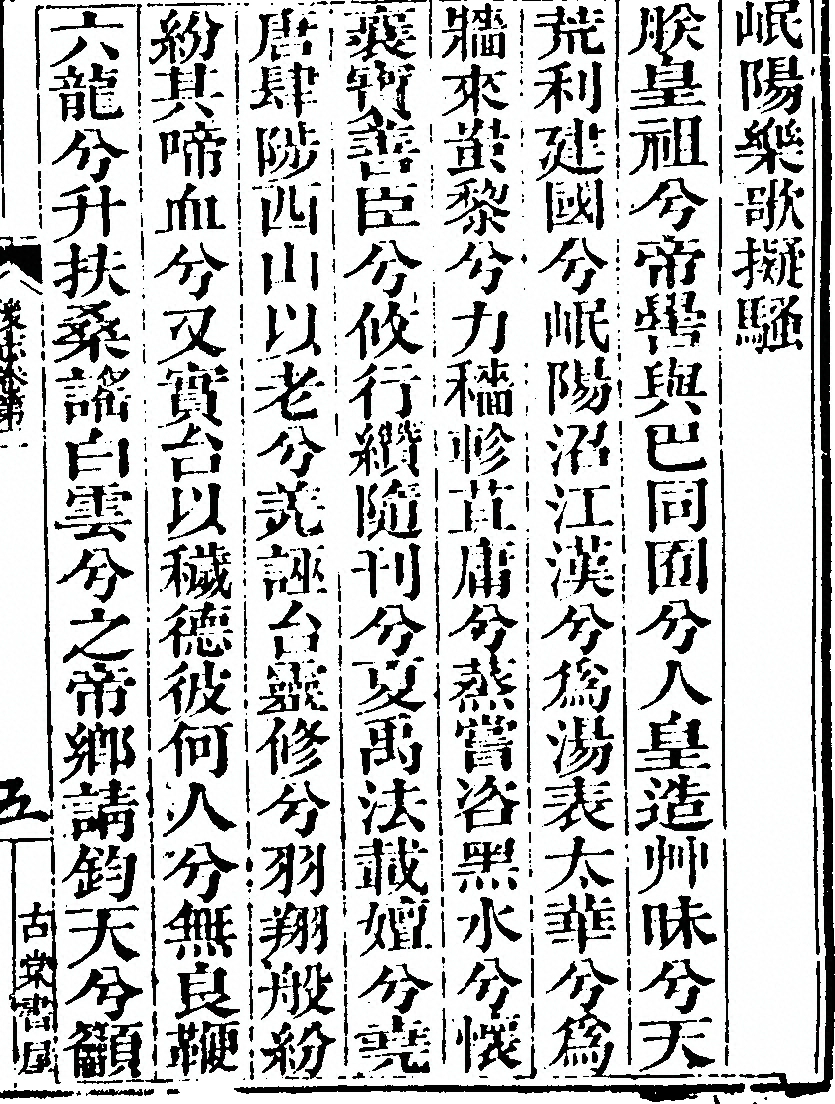 岷陽樂歌擬騷
朕皇祖兮帝嚳與巴同囿兮人皇造艸昧兮天
荒利建國兮岷陽沼江漢兮爲湯表太華兮爲
牆來蚩黎兮力穡畛苴庸兮蒸嘗咨黑水兮懷
襄寶善臣兮攸行纘隨刊兮夏禹法載嬗兮堯
唐肆陟西山以老兮羌誣台靈修兮羽翔般紛
紛其啼血兮又實台以穢德彼何人兮無良鞭
六龍兮升扶桑謠白雲兮之帝鄉請鈞天兮籲
志卷第
五
古棠書屋